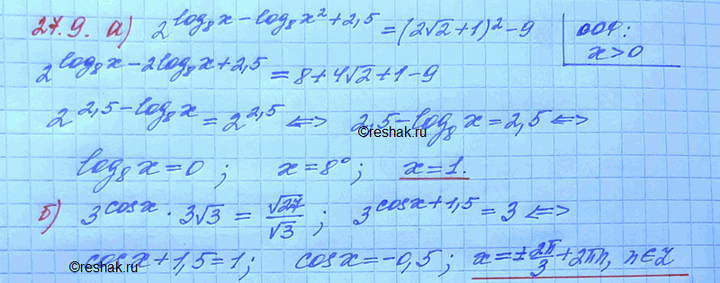 27.9. а) 2^(log₈x − log₈x² + 2,5) = (2√2 + 1)² − 9 | ООУ:
2^(log₈x − 2log₈x + 2,5) = 8 + 4√2 + 1 − 9 x > 0
2^(2,5 − log₈x) = 2^(2,5) ⇔ 2,5 − log₈x = 2,5 ⇔
©reshak.ru
log₈x = 0 ; x = 8⁰ ; x = 1.
б) 3^(cosx) · 3√3 = √27/√3 ; 3^(cosx + 1,5) = 3 ⇔
cosx + 1,5 = 1 ; cosx = −0,5 ; x = ±2π/3 + 2πn, n∈Z
©reshak.ru